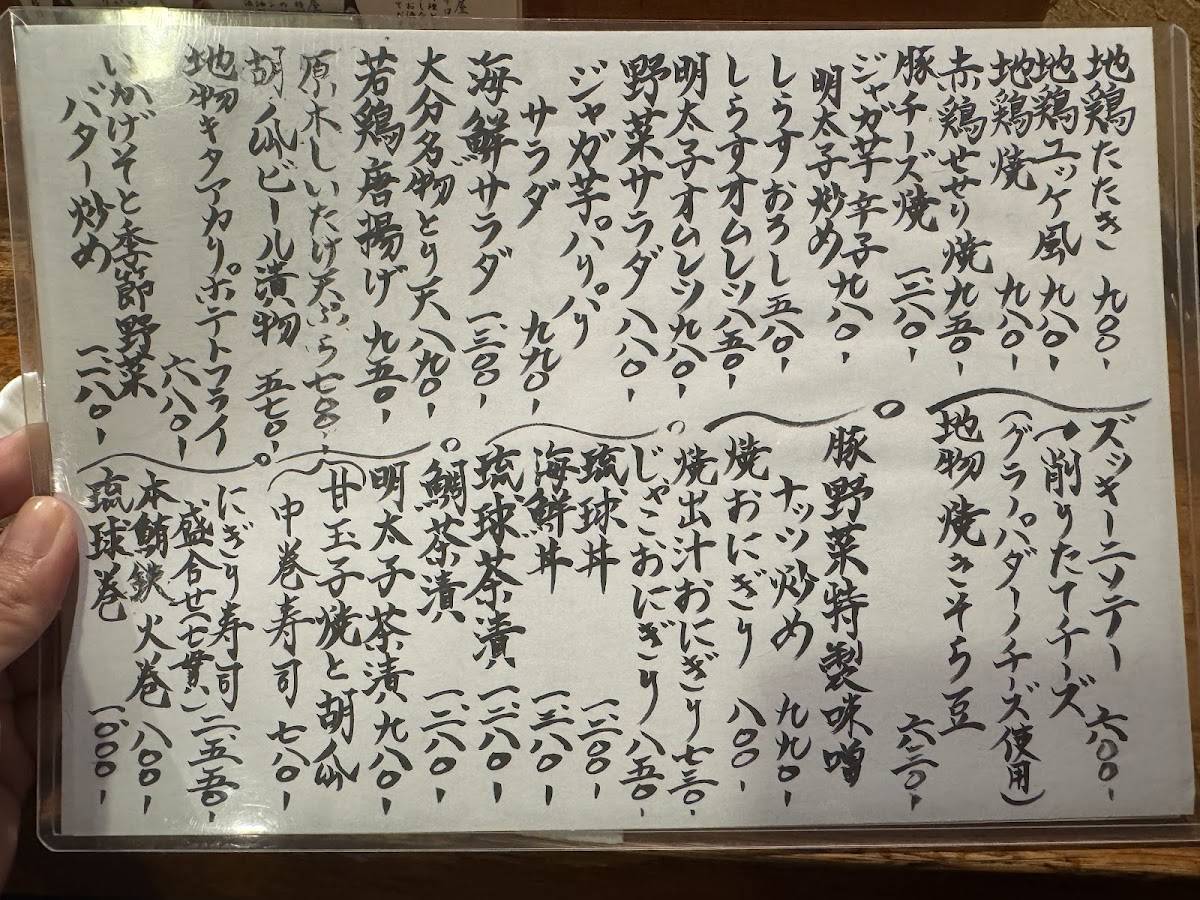 地鶏たたき 九〇〇-
地鶏ユッケ風 九八〇-
地鶏焼 九八〇-
赤鶏せせり焼 九五〇-
豚チーズ焼 一、二八〇-
ジャガ芋辛子
明太子炒め 九八〇-
しらすおろし 五八〇-
しらすオムレツ 八五〇-
明太子オムレツ 九八〇-
野菜サラダ 八八〇-
ジャガ芋パリパリ
サラダ 九九〇-
海鮮サラダ 一、三〇〇-
大分名物とり天 八九〇-
若鶏唐揚げ 九五〇-
原木しいたけ天ぷら 七〇〇-
胡瓜ビール漬物 五七〇-
地物キタアカリポテトフライ
六八〇-
いかげそと季節野菜
バター炒め 一、二八〇-
ズッキーニソテー 六八〇〇-
→削りたてチーズ
(グラナパダーノチーズ使用)
地物焼きそら豆 六三〇-
豚野菜特製味噌
ナッツ炒め 九九〇-
焼おにぎり 八〇〇-
焼出汁おにぎり 七三〇-
じゃこおにぎり 八五〇-
琉球丼 一、二〇〇-
海鮮丼 一、三八〇-
琉球茶漬 一、二八〇-
鯛茶漬 一、二八〇-
明太子茶漬 九八〇-
甘玉子焼と胡瓜
中巻寿司 七八〇-
にぎり寿司
盛合せ(七貫) 二、五五〇-
本鮪鉄火巻 八〇〇-
琉球巻 一、〇〇〇-